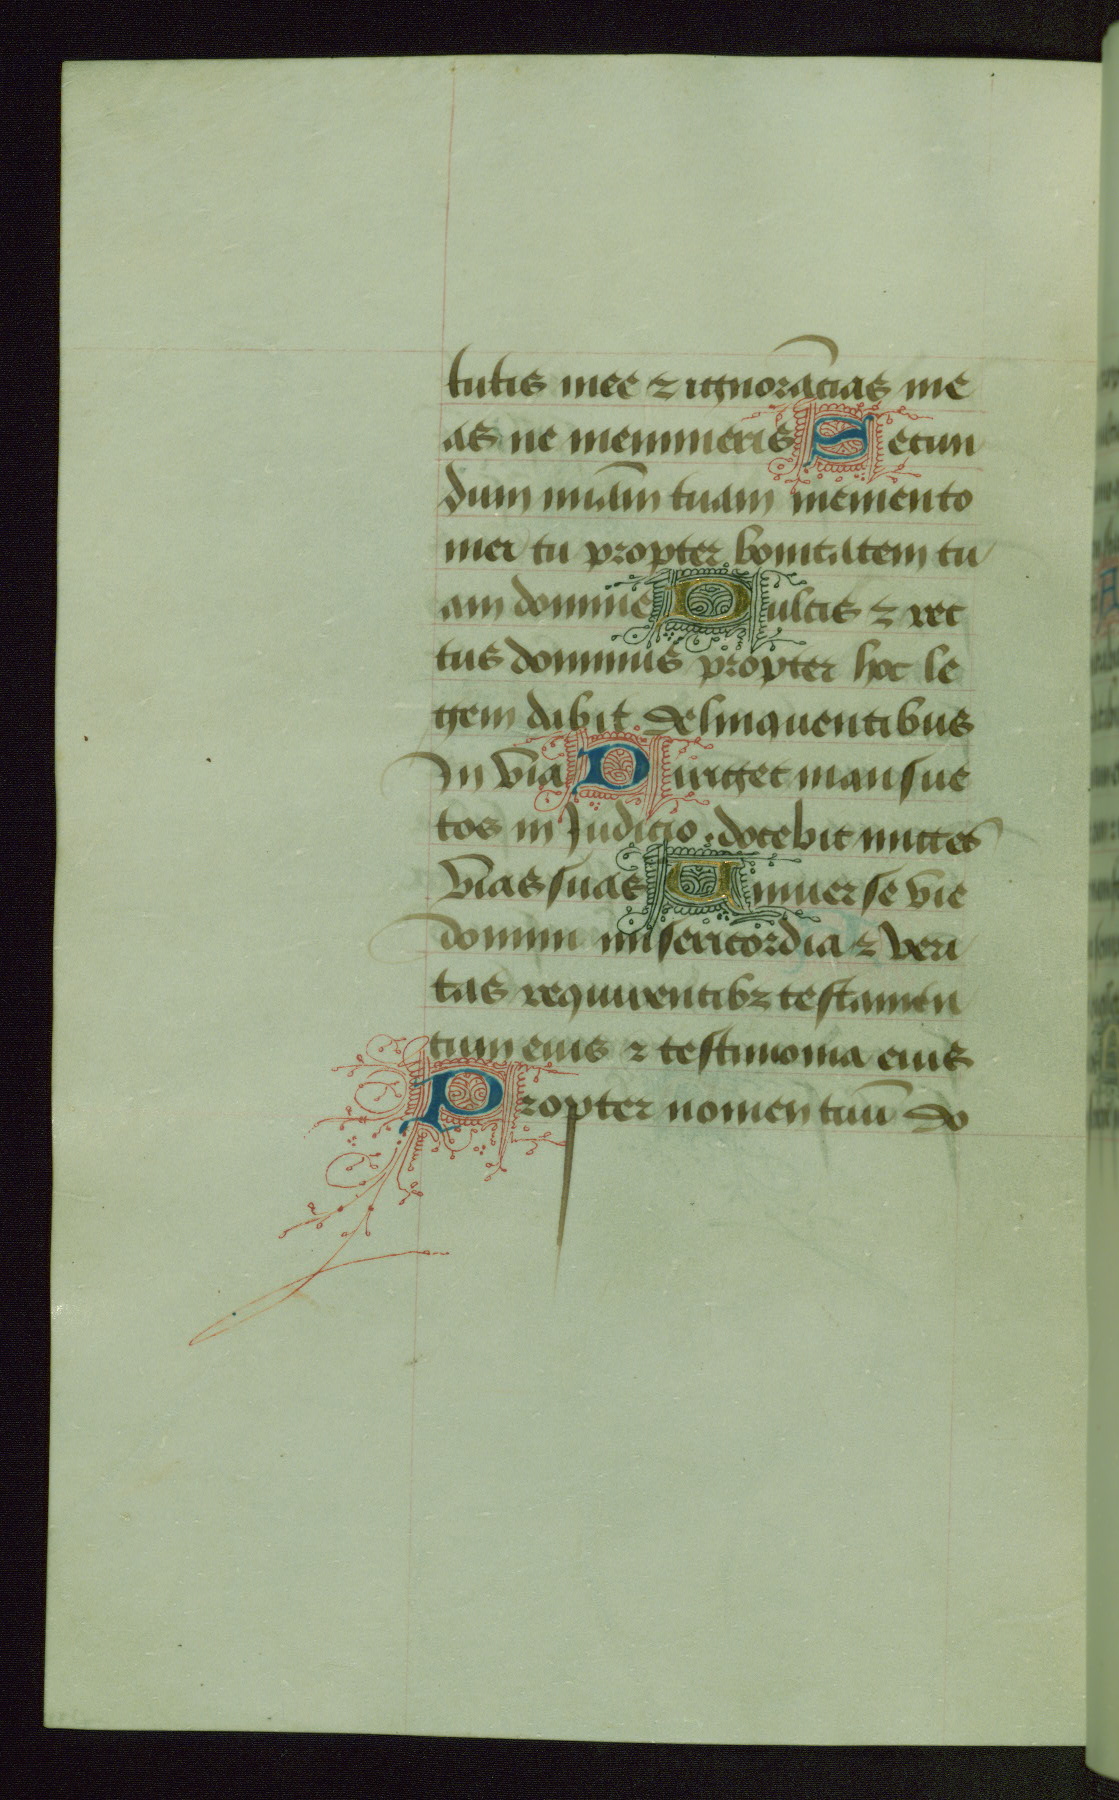 tutis mee ⁊ ignorācias me
as ne memineris Secun
dum mīam tuam memento
mei tu propter bonitatem tu
am domine Dulcis ⁊ rec
tus dominus propter hoc le
gem dabit delinquentibus
In via Diriget mansue
tos in Judicio . docebit mites
vias suas Uniuerse vie
domini misericordia ⁊ veri
tas requirentibꝫ testamen
tum eius ⁊ testimonia eius
Propter nomen tuū do